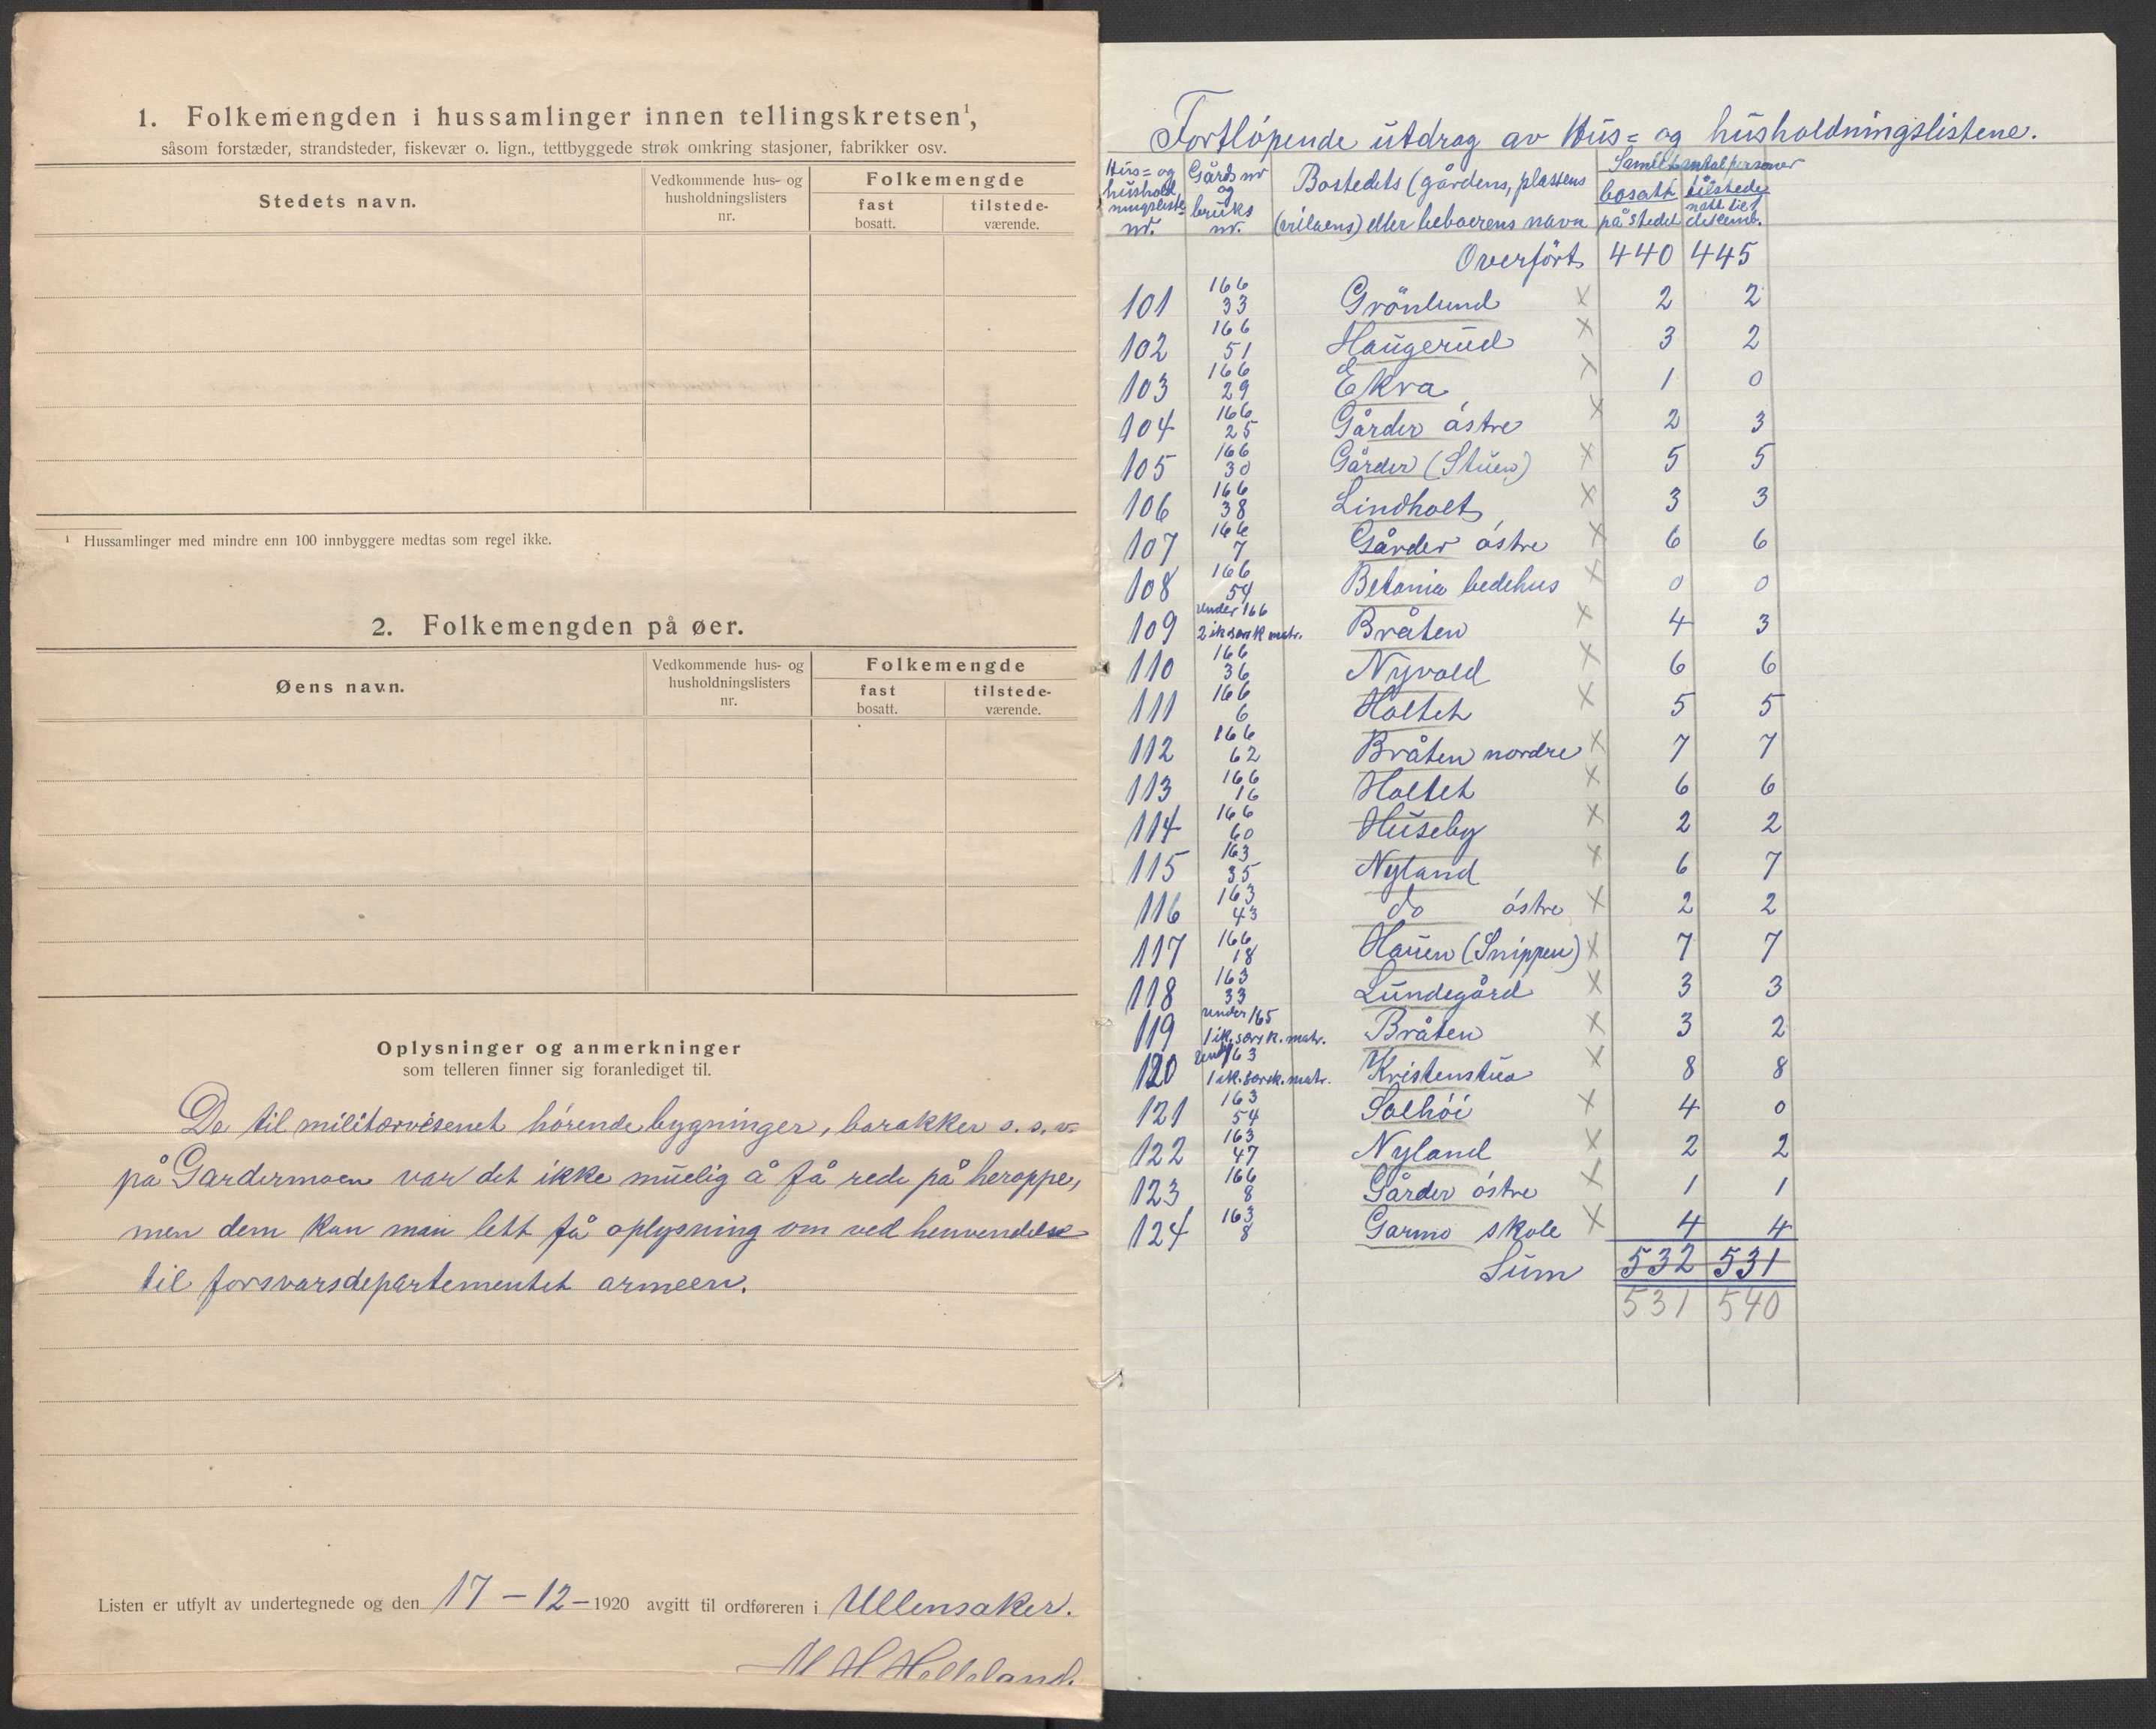 1. Folkemengden i hussamlinger innen tellingskretsen¹,
såsom forstæder, strandsteder, fiskevær o. lign., tettbyggede strøk omkring stasjoner, fabrikker osv.
Stedets navn.
Vedkommende hus- og
husholdningslisters
nr.
Folkemengde
fast
bosatt.
tilstede-
værende.
¹ Hussamlinger med mindre enn 100 innbyggere medtas som regel ikke.
2. Folkemengden på øer.
Øens navn.
Vedkommende hus- og
husholdningslisters
nr.
Folkemengde
fast
bosatt.
tilstede-
værende.
Oplysninger og anmerkninger
som telleren finner sig foranlediget til.
De til militærvesenet hórende bygninger, barakker o.s.v.
på Gardermoen var det ikke muelig å få rede på heroppe,
men dem kan man lett få oplysning om ved henvendelse
til forsvarsdepartementet armeen.
Listen er utfylt av undertegnede og den 17 - 12 - 1920 avgitt til ordføreren i Ullensaker.
M H. Helleland.
Fortlópende utdrag av Hus= og husholdningslistene.
Hus= og
hushold
ningsliste=
nr.
Gårds nr
og
bruks
nr.
Bostedets (gårdens, plassens
(villaens) eller beboerens navn
Samlet antal personer
bosatt
på stedet
tilstede
natt til 1
desemb.
Overfört 440 445
101 166 33 Grönlund x 2 2
102 166 51 Haugerud x 3 2
103 166 29 Ekra x 1 0
104 166 25 Gårder óstre x 2 3
105 166 30 Gårder (Stuen) x 5 5
106 166 38 Lindholt x 3 3
107 166 7 Gårder óstre x 6 6
108 166 54 Betania bedehus x 0 0
109 under 166 2 ik særsk matr. Bråten x 4 3
110 166 36 Nyvold x 6 6
111 166 6 Holtet x 5 5
112 166 62 Bråten nordre x 7 7
113 166 16 Holtet x 6 6
114 166 60 Huseby x 2 2
115 163 35 Nyland x 6 7
116 163 43 do óstre x 2 2
117 166 18 Hauen (Snippen) x 7 7
118 163 33 Lundegård x 3 3
119 under 165 1 ik. særsk. matr. Bråten x 3 2
120 under 163 1 ik. særsk. matr. Kristenstua x 8 8
121 163 54 Solhói x 4 0
122 163 47 Nyland x 2 2
123 166 8 Gårder óstre x 1 1
124 163 8 Garmo skole x 4 4
Sum 532 531
531 540